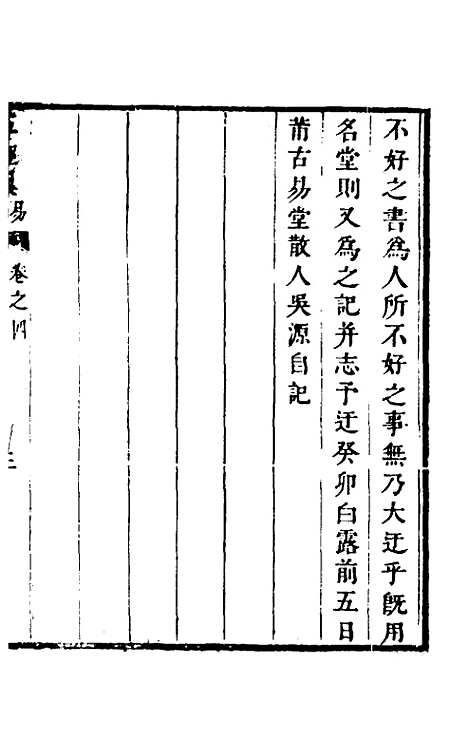 不好之書爲人所不好之事無乃大迂乎既用
名堂則又爲之記并志予迂癸卯白露前五日
莆古易堂散人吳源自記
易
卷之四